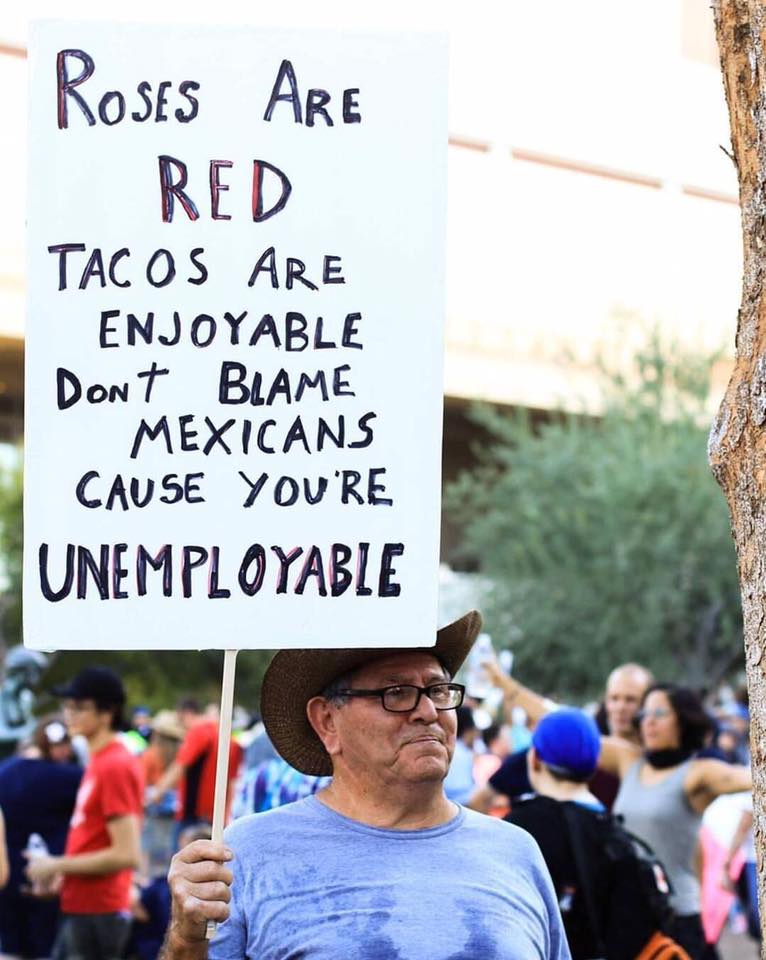 ROSES ARE
RED
TACOS ARE
ENJOYABLE
DON'T BLAME
MEXICANS
CAUSE YOU'RE
UNEMPLOYABLE